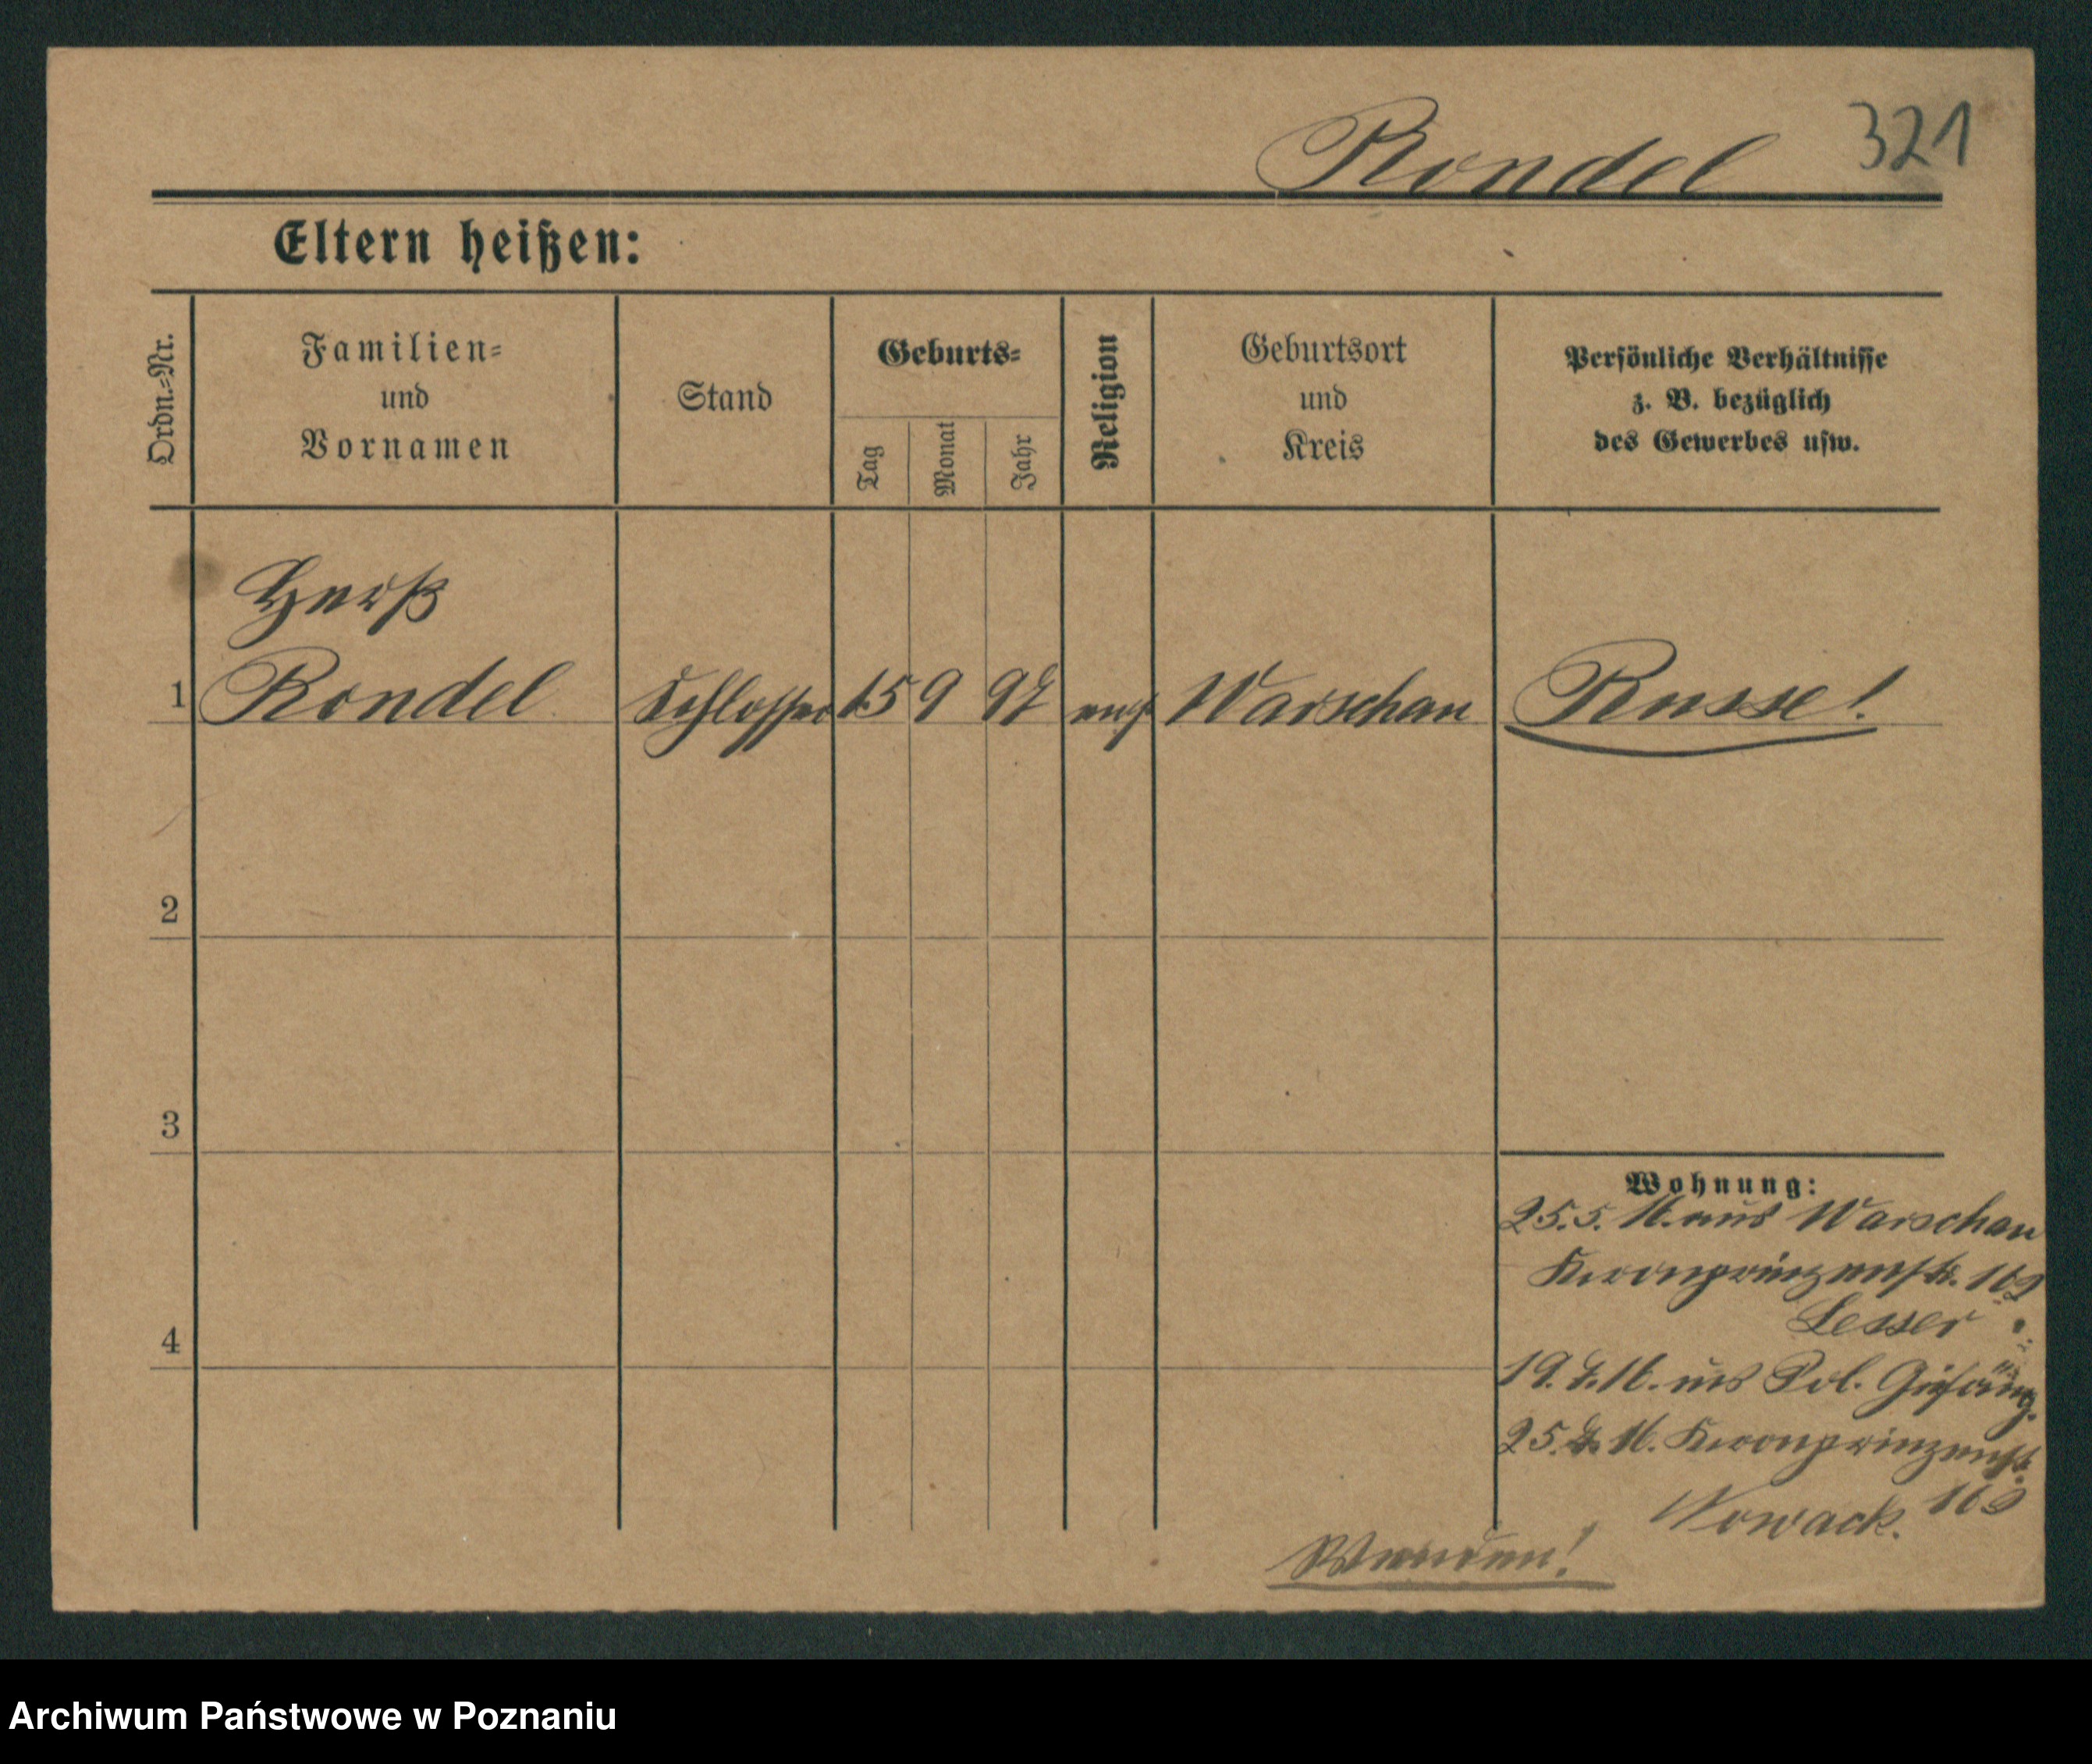 Rondel 321
Eltern heißen:
Ordn.-Nr.
Familien-
und
Vornamen
Stand
Geburts-
Tag
Monat
Jahr
Religion
Geburtsort
und
Kreis
Persönliche Verhältnisse
z. B. bezüglich
des Gewerbes usw.
Hersß
1 Rondel Schlosser 15 9 97 mos Warschau Russe!
2
3
4
Wohnung:
25.5.16. aus Warschau
Kronprinzenstr. 102
Lesser
19.7.16. ins Pol. Gefäng.
25.7.16. Kronprinzenstr.
Nowack.
Wenden!
Archiwum Państwowe w Poznaniu